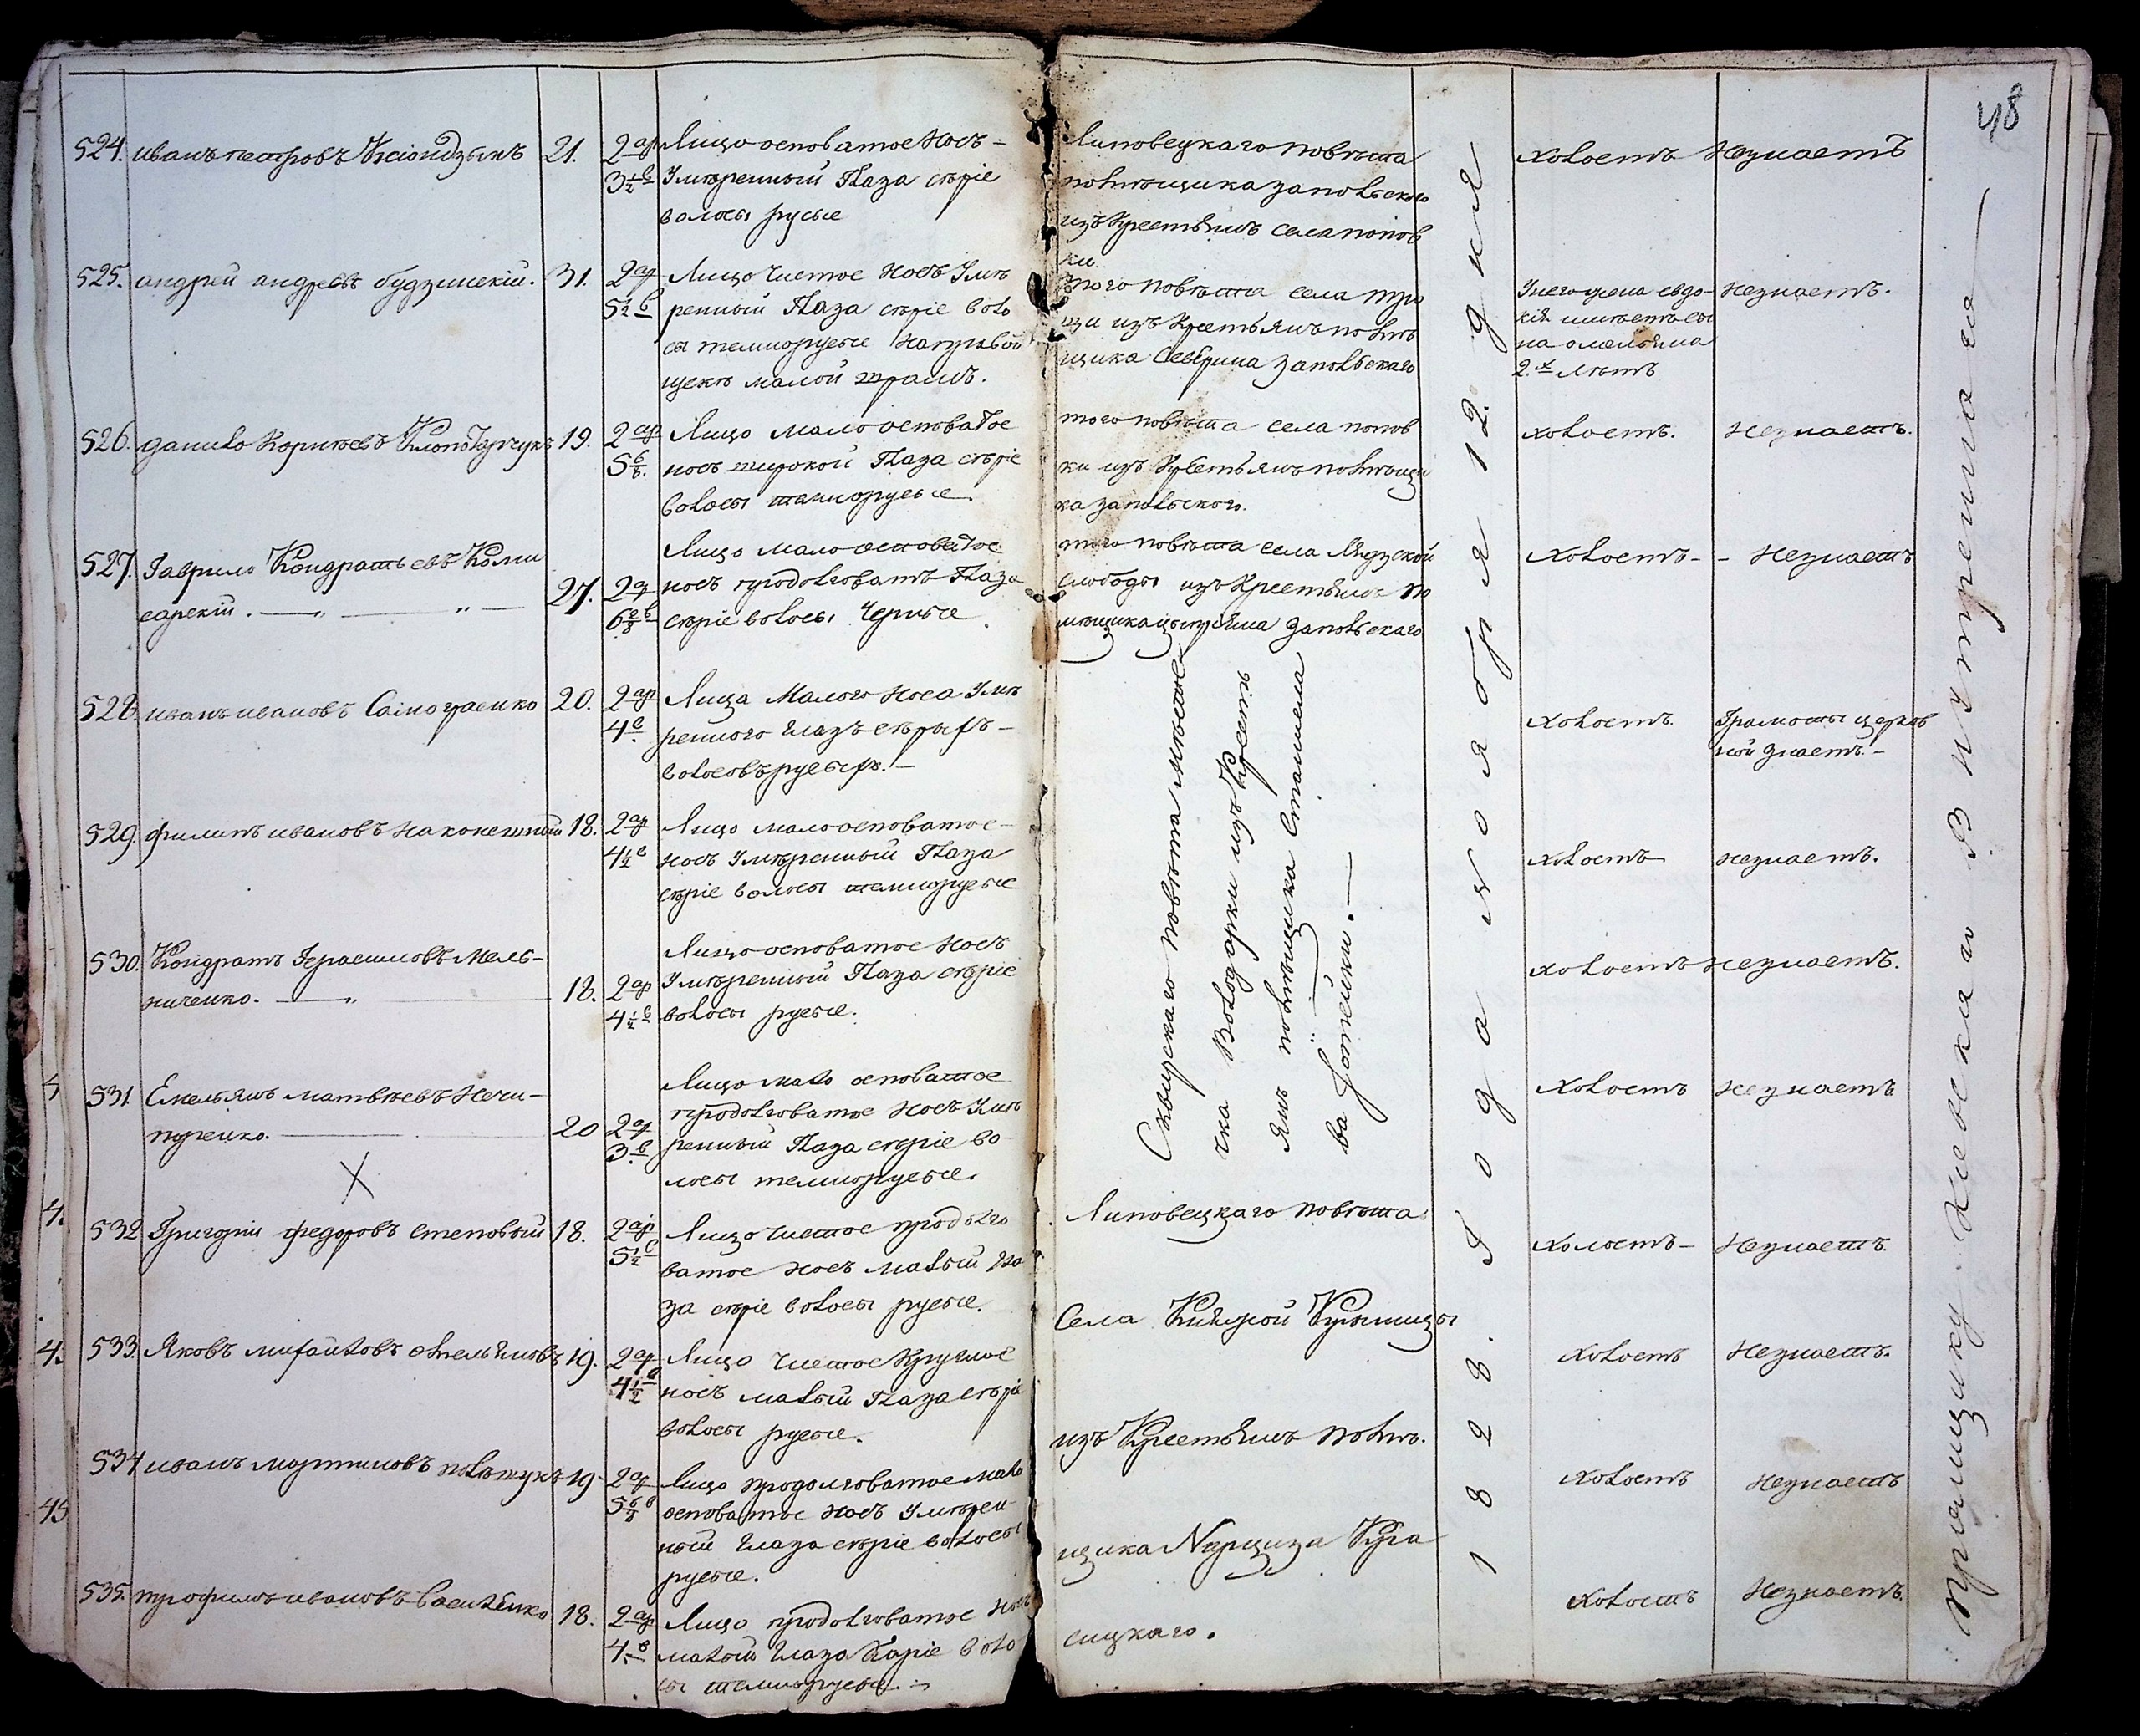 48
524. иванъ петровъ Ксіондзыкъ 21. 2 ар 3 1/2 в
Лицо осповатое носъ -
Умѣренный Глаза сѣріе
волосы русые
Липовецкаго повѣта
помѣщика запольского
изъ Крестьянъ села попов
ки
холостъ незнаетъ
525. андрей андреевъ будзинскій. 31. 2 ар 5 1/2 в
Лицо чистое носъ Умѣ
ренный Глаза сѣріе воло
сы темнорусые на правой
щекѣ малой шрамъ.
того повѣта села
изъ Крестьянъ помѣ
щика Северина запольскаго
У него жена евдо-
кія имѣетъ сы
на омельяна
2.х лѣтъ
незнаетъ.
526. данило Корнѣевъ 19. 2 ар 5 6/8.
Лицо мало осповатое
носъ широкой Глаза сѣріе
волосы темнорусые.
того повѣта села попов
ки изъ Крестьянъ помѣщи
ка запольского.
холостъ. незнаетъ.
527. Гаврило Кондратьевъ Коми
сарскій. 27. 2 ар 6 6/8 в
Лицо мало осповатое
носъ продолговатъ Глаза
сѣріе волосы Черные.
того повѣта села Лядзской
слободы изъ Крестьянъ по
мѣщика запольскаго
холостъ - - незнаетъ
528. иванъ ивановъ 20. 2 ар 4 в.
Лица Малого носа Умѣ
ренного глазъ сѣрыхъ -
волосовъ русыхъ. -
холостъ. Грамоты церков
ной знаетъ. -
529. филипъ ивановъ наконешный 18. 2 ар 4 1/2 в
Лицо мало осповатое
носъ Умѣренный Глаза
сѣріе волосы темнорусые
холостъ незнаетъ.
530. Кондратъ Герасимовъ Мель-
ниченко. 18. 2 ар 4 1/2 в
Лицо осповатое носъ
Умѣренный Глаза сѣріе
волосы русые.
холостъ незнаетъ.
531. Емельянъ матвѣевъ Нечи-
пуренко. 20 2 ар 3. в
Лицо мало осповатое
продолговатое носъ Умѣ
ренный Глаза сѣріе во
лосы темнорусые.
холостъ незнаетъ
Сквирскаго повѣта мѣстѣ
чка Володарки изъ Крестъ
янъ помѣщика Станисла
ва
532 Григорій федоровъ степовый 18. 2 ар 5 1/2 в
Лицо чистое продолго
ватое носъ малый гла
за сѣріе волосы русые.
Липовецкаго повѣта
холостъ - незнаетъ.
533. Яковъ михайловъ омельяновъ 19. 2 ар 4 1/2 в
Лицо чистое Круглое
носъ малый Глаза сѣріе
волосы русые.
Села Княжой Крыницы
холостъ незнаетъ.
534 иванъ мартиновъ полѣщукъ 19 2 ар 5 6/8 в
Лицо продолговатое мало
осповатое носъ Умѣрен
ный Глаза сѣріе волосы
русые.
изъ Крестьянъ помѣ.
щика Нарциза Кра
холостъ незнаетъ
535. трофимъ ивановъ Василенко 18. 2 ар 4. в
Лицо продолговатое носъ
малой Глаза Каріе воло
сы темнорусые. -
сицкаго.
холостъ незнаетъ.
1828. Года ноября 12. дня
пріемщику Киевскаго Внутренняго